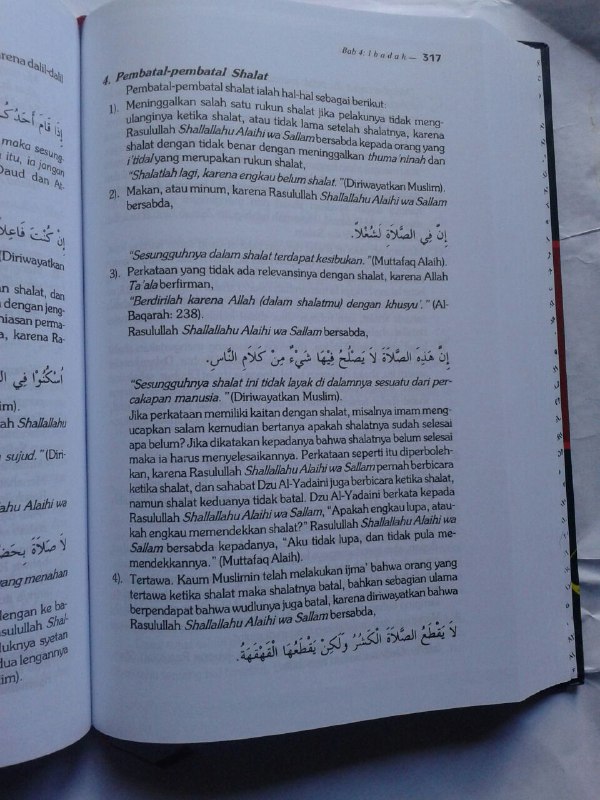 arena dalil-dalil
إِذَا قَامَ أَحَدُكُ
maka sesung-
itu, ia jangan
Daud dan At-
إِنْ كُنْتَ فَاعِلاً
(Diriwayatkan
an shalat, dan
dengan jeng-
hiasan perma-
, karena Ra-
اُسْكُنُوْا فِي ال
im).
ah Shallallahu
sujud." (Diri-
ahu Alaihi wa
لاَ صَلاَةَ بِحَضْ
yang menahan
dengan ke ba-
asulullah Shal-
duknya syetan
dua lengannya
im).
Bab 4: Ibadah — 317
4. Pembatal-pembatal Shalat
Pembatal-pembatal shalat ialah hal-hal sebagai berikut:
1). Meninggalkan salah satu rukun shalat jika pelakunya tidak meng-
ulanginya ketika shalat, atau tidak lama setelah shalatnya, karena
Rasulullah Shallallahu Alaihi wa Sallam bersabda kepada orang yang
shalat dengan tidak benar dengan meninggalkan thuma'ninah dan
i'tidal yang merupakan rukun shalat,
"Shalatlah lagi, karena engkau belum shalat." (Diriwayatkan Muslim).
2). Makan, atau minum, karena Rasulullah Shallallahu Alaihi wa Sallam
bersabda,
إِنَّ فِي الصَّلاَةِ لَشُغْلاً.
"Sesungguhnya dalam shalat terdapat kesibukan." (Muttafaq Alaih).
3). Perkataan yang tidak ada relevansinya dengan shalat, karena Allah
Ta'ala berfirman,
"Berdirilah karena Allah (dalam shalatmu) dengan khusyu'." (Al-
Baqarah: 238).
Rasulullah Shallallahu Alaihi wa Sallam bersabda,
إِنَّ هَذِهِ الصَّلاَةَ لاَ يَصْلُحُ فِيْهَا شَيْءٌ مِنْ كَلاَمِ النَّاسِ.
"Sesungguhnya shalat ini tidak layak di dalamnya sesuatu dari per-
cakapan manusia." (Diriwayatkan Muslim).
Jika perkataan memiliki kaitan dengan shalat, misalnya imam meng-
ucapkan salam kemudian bertanya apakah shalatnya sudah selesai
apa belum? Jika dikatakan kepadanya bahwa shalatnya belum selesai
maka ia harus menyelesaikannya. Perkataan seperti itu diperboleh-
kan, karena Rasulullah Shallallahu Alaihi wa Sallam pernah berbicara
ketika shalat, dan sahabat Dzu Al-Yadaini juga berbicara ketika shalat,
namun shalat keduanya tidak batal. Dzu Al-Yadaini berkata kepada
Rasulullah Shallallahu Alaihi wa Sallam, "Apakah engkau lupa, atau-
kah engkau memendekkan shalat?" Rasulullah Shallallahu Alaihi wa
Sallam bersabda kepadanya, "Aku tidak lupa, dan tidak pula me-
mendekkannya." (Muttafaq Alaih).
4). Tertawa. Kaum Muslimin telah melakukan ijma' bahwa orang yang
tertawa ketika shalat maka shalatnya batal, bahkan sebagian ulama
berpendapat bahwa wudlunya juga batal, karena diriwayatkan bahwa
Rasulullah Shallallahu Alaihi wa Sallam bersabda,
لاَ يَقْطَعُ الصَّلاَةَ الْكَشْرُ وَلَكِنْ يَقْطَعُهَا الْقَهْقَهَةُ.